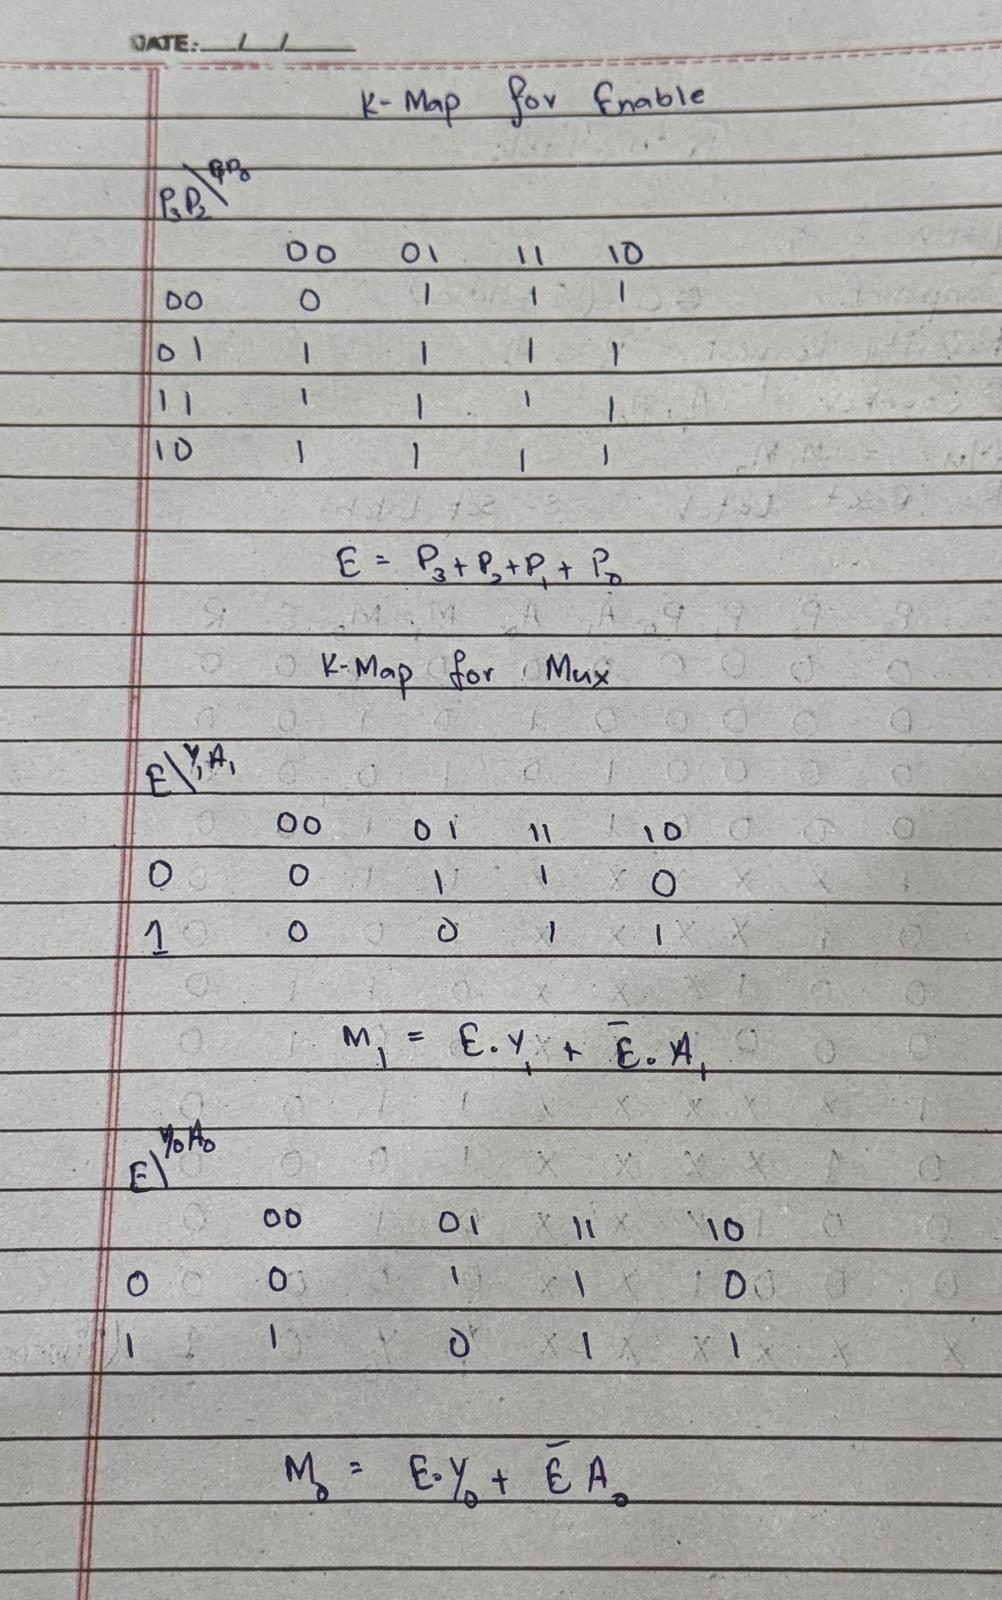 DATE: / /
K-Map for Enable
P₃P₂\P₁P₀
00 01 11 10
00 0 1 1 1
01 1 1 1 1
11 1 1 1 1
10 1 1 1 1
E = P₃+P₂+P₁+P₀
K-Map for Mux
E\Y₁A₁
00 01 11 10
0 0 1 1 0
1 0 0 1 1
M₁ = E.Y₁ + Ē.A₁
E\Y₀A₀
00 01 11 10
0 0 1 1 0
1 1 0 1 1
M₀ = E.Y₀ + Ē A₀